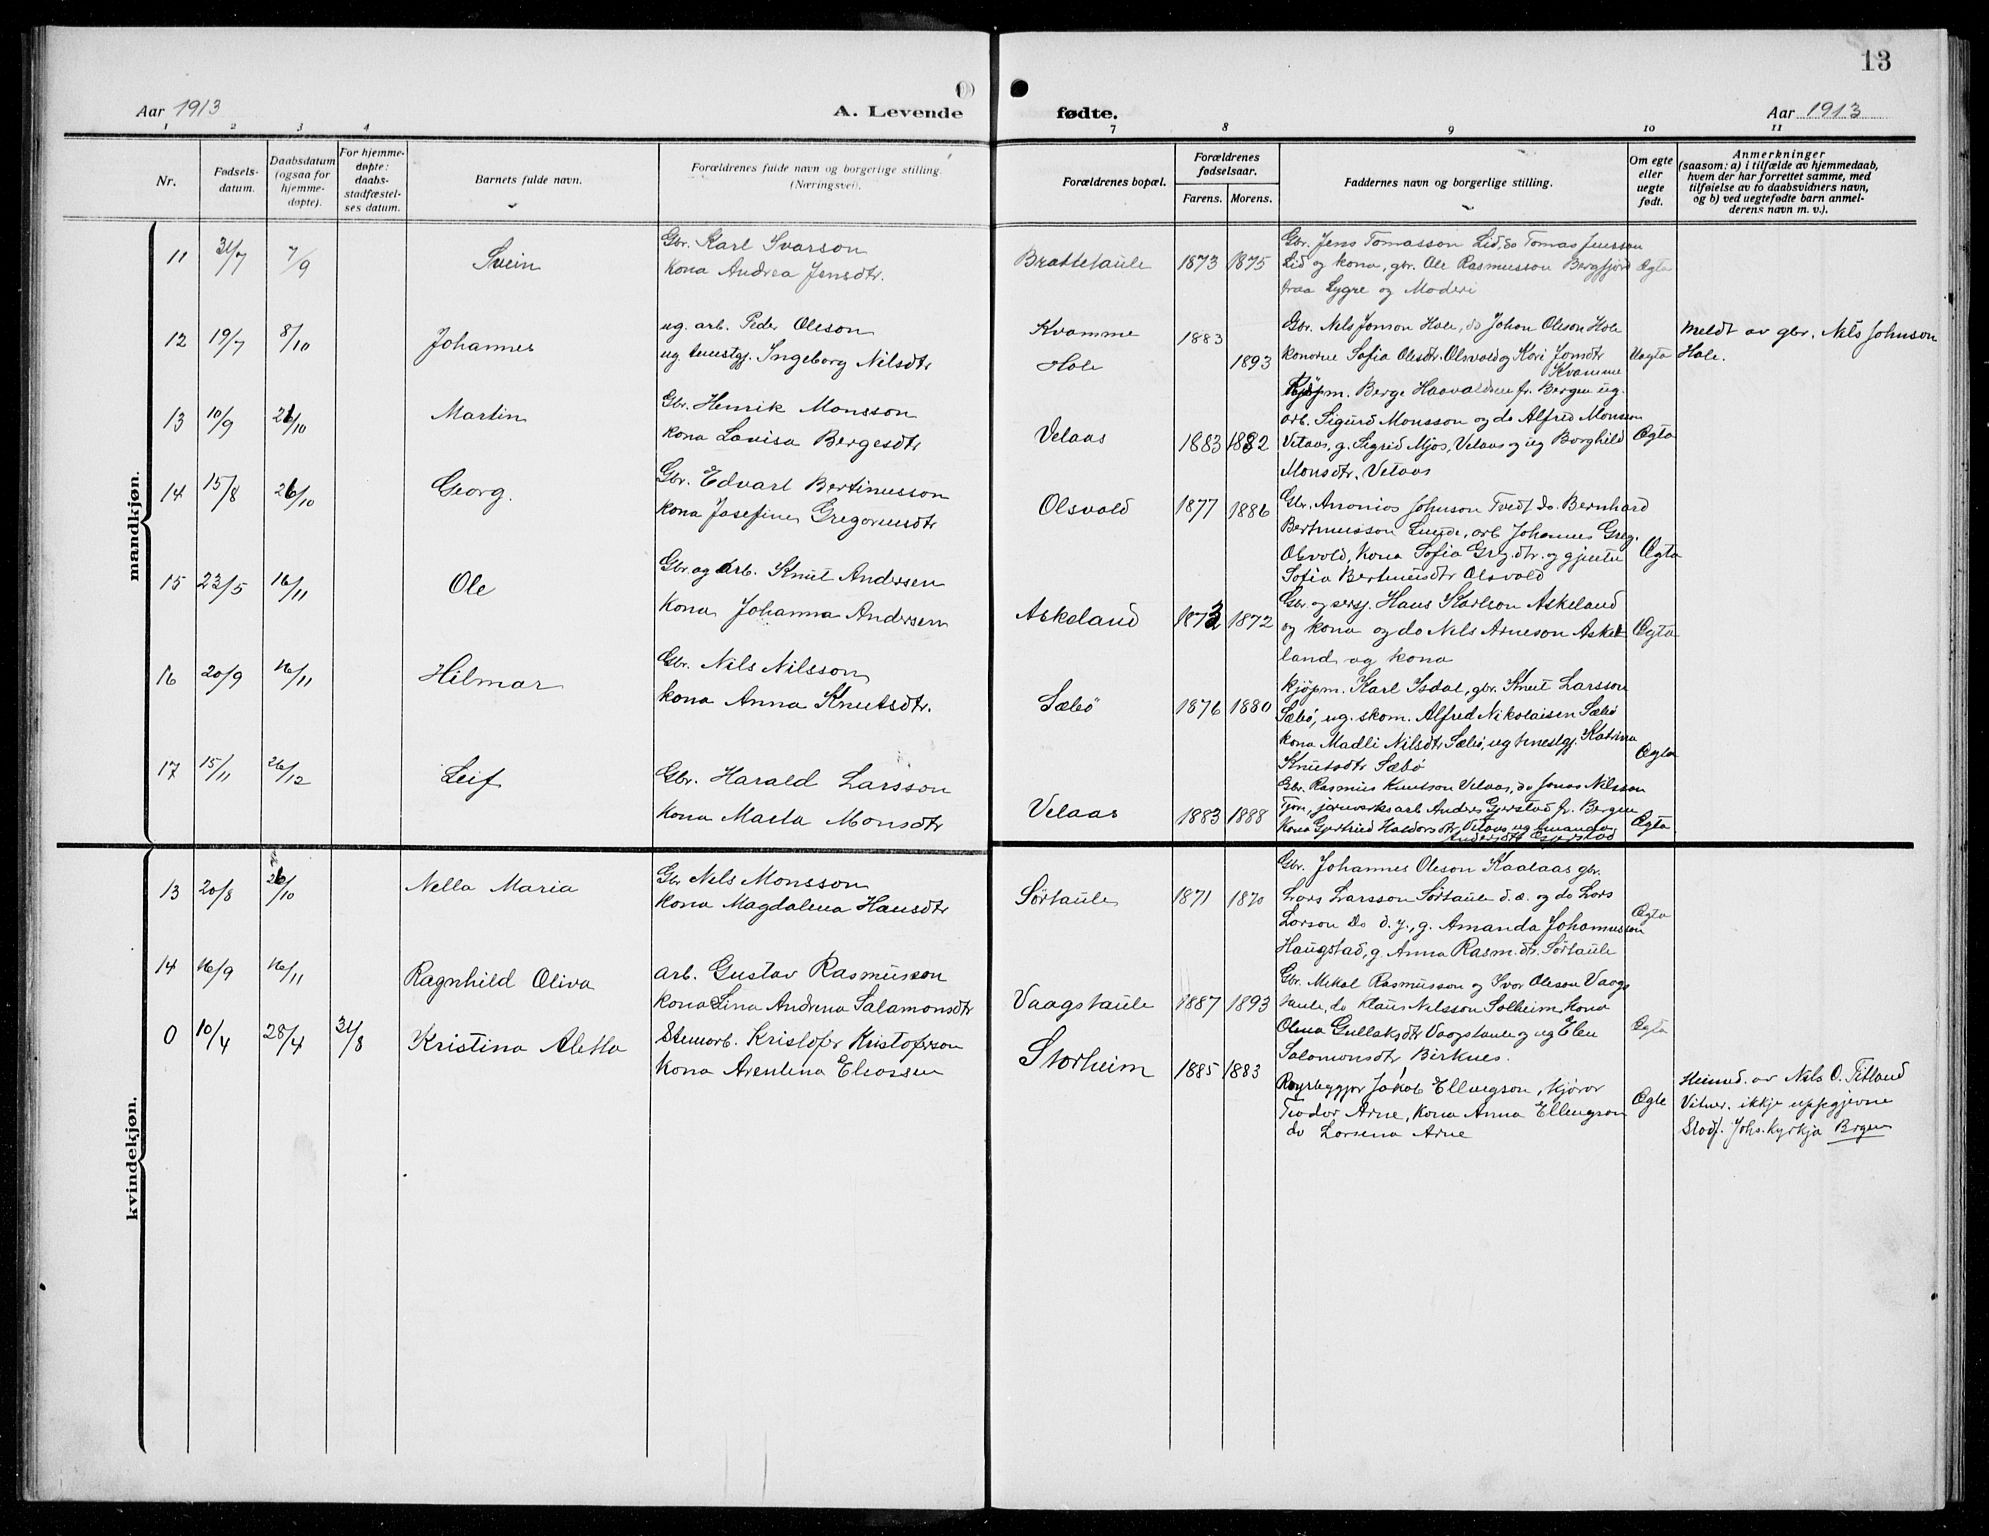 13
Aar 1913
A. Levende
fødte.
Aar 1913
1 2 3 4
7 8 9 10 11
Nr.
Fødsels-
datum.
Daabsdatum
(ogsaa for
hjemme-
døpte).
For hjemme-
døpte:
daabs-
stadfæstel-
ses datum.
Barnets fulde navn.
Forældrenes fulde navn og borgerlige stilling.
(Næringsvei).
Forældrenes bopæl.
Forældrenes
fødselsaar.
Farens. Morens.
Faddernes navn og borgerlige stilling.
Om egte
eller
uegte
født.
Anmerkninger
(saasom: a) i tilfælde av hjemmedaab,
hvem der har forrettet samme, med
tilføielse av to daabsvidners navn,
og b) ved uegtefødte barn anmel-
derens navn m. v.).
mandkjøn.
11 31/7 7/9 Svein
Gbr. Karl Ivarson
Kona Andrea Jensdtr.
Brattetaule 1873 1875
Gbr. Jens Tomasson Lid, do Tomas Jensson
Lid og kona, gbr. Ole Rasmusson Bergfjord
fraa Lygre og Moderi
Ægta
12 19/7 8/10 Johannes
ug. arb. Peder Oleson
ug. tenestgj. Ingeborg Nilsdtr
Kvamme 1883
Hole 1893
Gbr. Nils Jonson Hole, do Johan Oleson Hole
konorne Sofia Olesdtr. Olsvold og Kari Jonsdtr
Kvamme
Uægta
Meldt av gbr. Nils Johnson
Hole.
13 10/9 26/10 Martin
Gbr. Henrik Monsson
kona Lovisa Bergesdtr
Velaas 1883 1882
Kjøpm. Berge Haavaldsen fr. Bergen ug.
arb. Sigurd Monsson og do Alfred Monsson
Vetaas, g. Sigrid Mjos, Velaas og ug Borghild
Monsdtr. Vetaas
Ægta
14 15/8 26/10 Georg.
Gbr. Edvart Bertinusson
kona Josefine Gregoriusdtr
Olsvold 1877 1886
Gbr. Antonios Johnson Tvedt do. Bernhard
Bertinusson Lunde, arb Johannes Greg.
Olsvold, kona Sofia Grg.dtr. og gjenta
Sofia Bertinusdtr Olsvold
Ægta
15 23/5 16/11 Ole
Gbr. og arb. Knut Andersen
Kona Johanna Andersen
Askeland 1873 1872
Gbr og sersj. Hans Karlson Askeland
og kona og do Nels Arneson Aske
land og kona
Ægta
16 20/9 16/11 Hilmar
Gbr. Nils Nilsson
kona Anna Knutsdtr.
Sæbö 1876 1880
Kjøpm. Karl Isdal, gbr. Knut Larsson
Sæbö, ug. skom. Alfred Nikolaisen Sæbö
kona Madli Nilsdtr Sæbö, ug tenestgj. Katrina
Knutsdtr Sæbö
Ægta
17 15/11 26/12 Leif
Gbr. Harald Larsson
Kona Marta Monsdtr
Velaas 1883 1888
Gbr. Rasmus Knutson Velaas, do Jonas Nilsson
Tjore, jernverksarb Anders Gjerstad fr. Bergen
Kona Gjertrud Haldorsdtr Vetaas ug Amanda
Andersdtr Gjerstad
Ægta
kvindekjøn.
13 20/8 26/10 Nella Maria
Gbr Nels Monsson
kona Magdalena Hansdtr
Sørtaule 1871 1870
Gbr. Johannes Oleson Kaalaas gbr.
Lars Larsson Sørtaule d. e. og do Lars
Larson Do d. y., g. Amanda Johannesson
Haugstad, g. Anna Rasm.dtr. Sørtaule
Ægta
14 16/9 16/11 Ragnhild Oliva
arb. Gustav Rasmusson
kona Lina Andrena Salamonsdtr
Vaagstaule 1887 1893
Gbr. Mikal Rasmusson og Ivor Oleson Vaags
taule, do Klaus Nilsson Solheim, kona
Olena Gullaksdtr Vaagstaule og ug Elen
Salomonsdtr Birknes.
Ægta
0 10/4 28/4 31/8 Kristina Aletta
Stenarb. Kristofer Kristoferson
Kona Arentina Eliassen
Storheim 1885 1883
Røyrbyggjor Jakob Ellingson, kjøror
Teodor Arne, kona Anna Ellingson
do Lorena Arne
Ægte
Heimed. av Nils O. Titland
Vitner. ikkje uppgjevne
Stadf. Johs. kyrkja Brgen